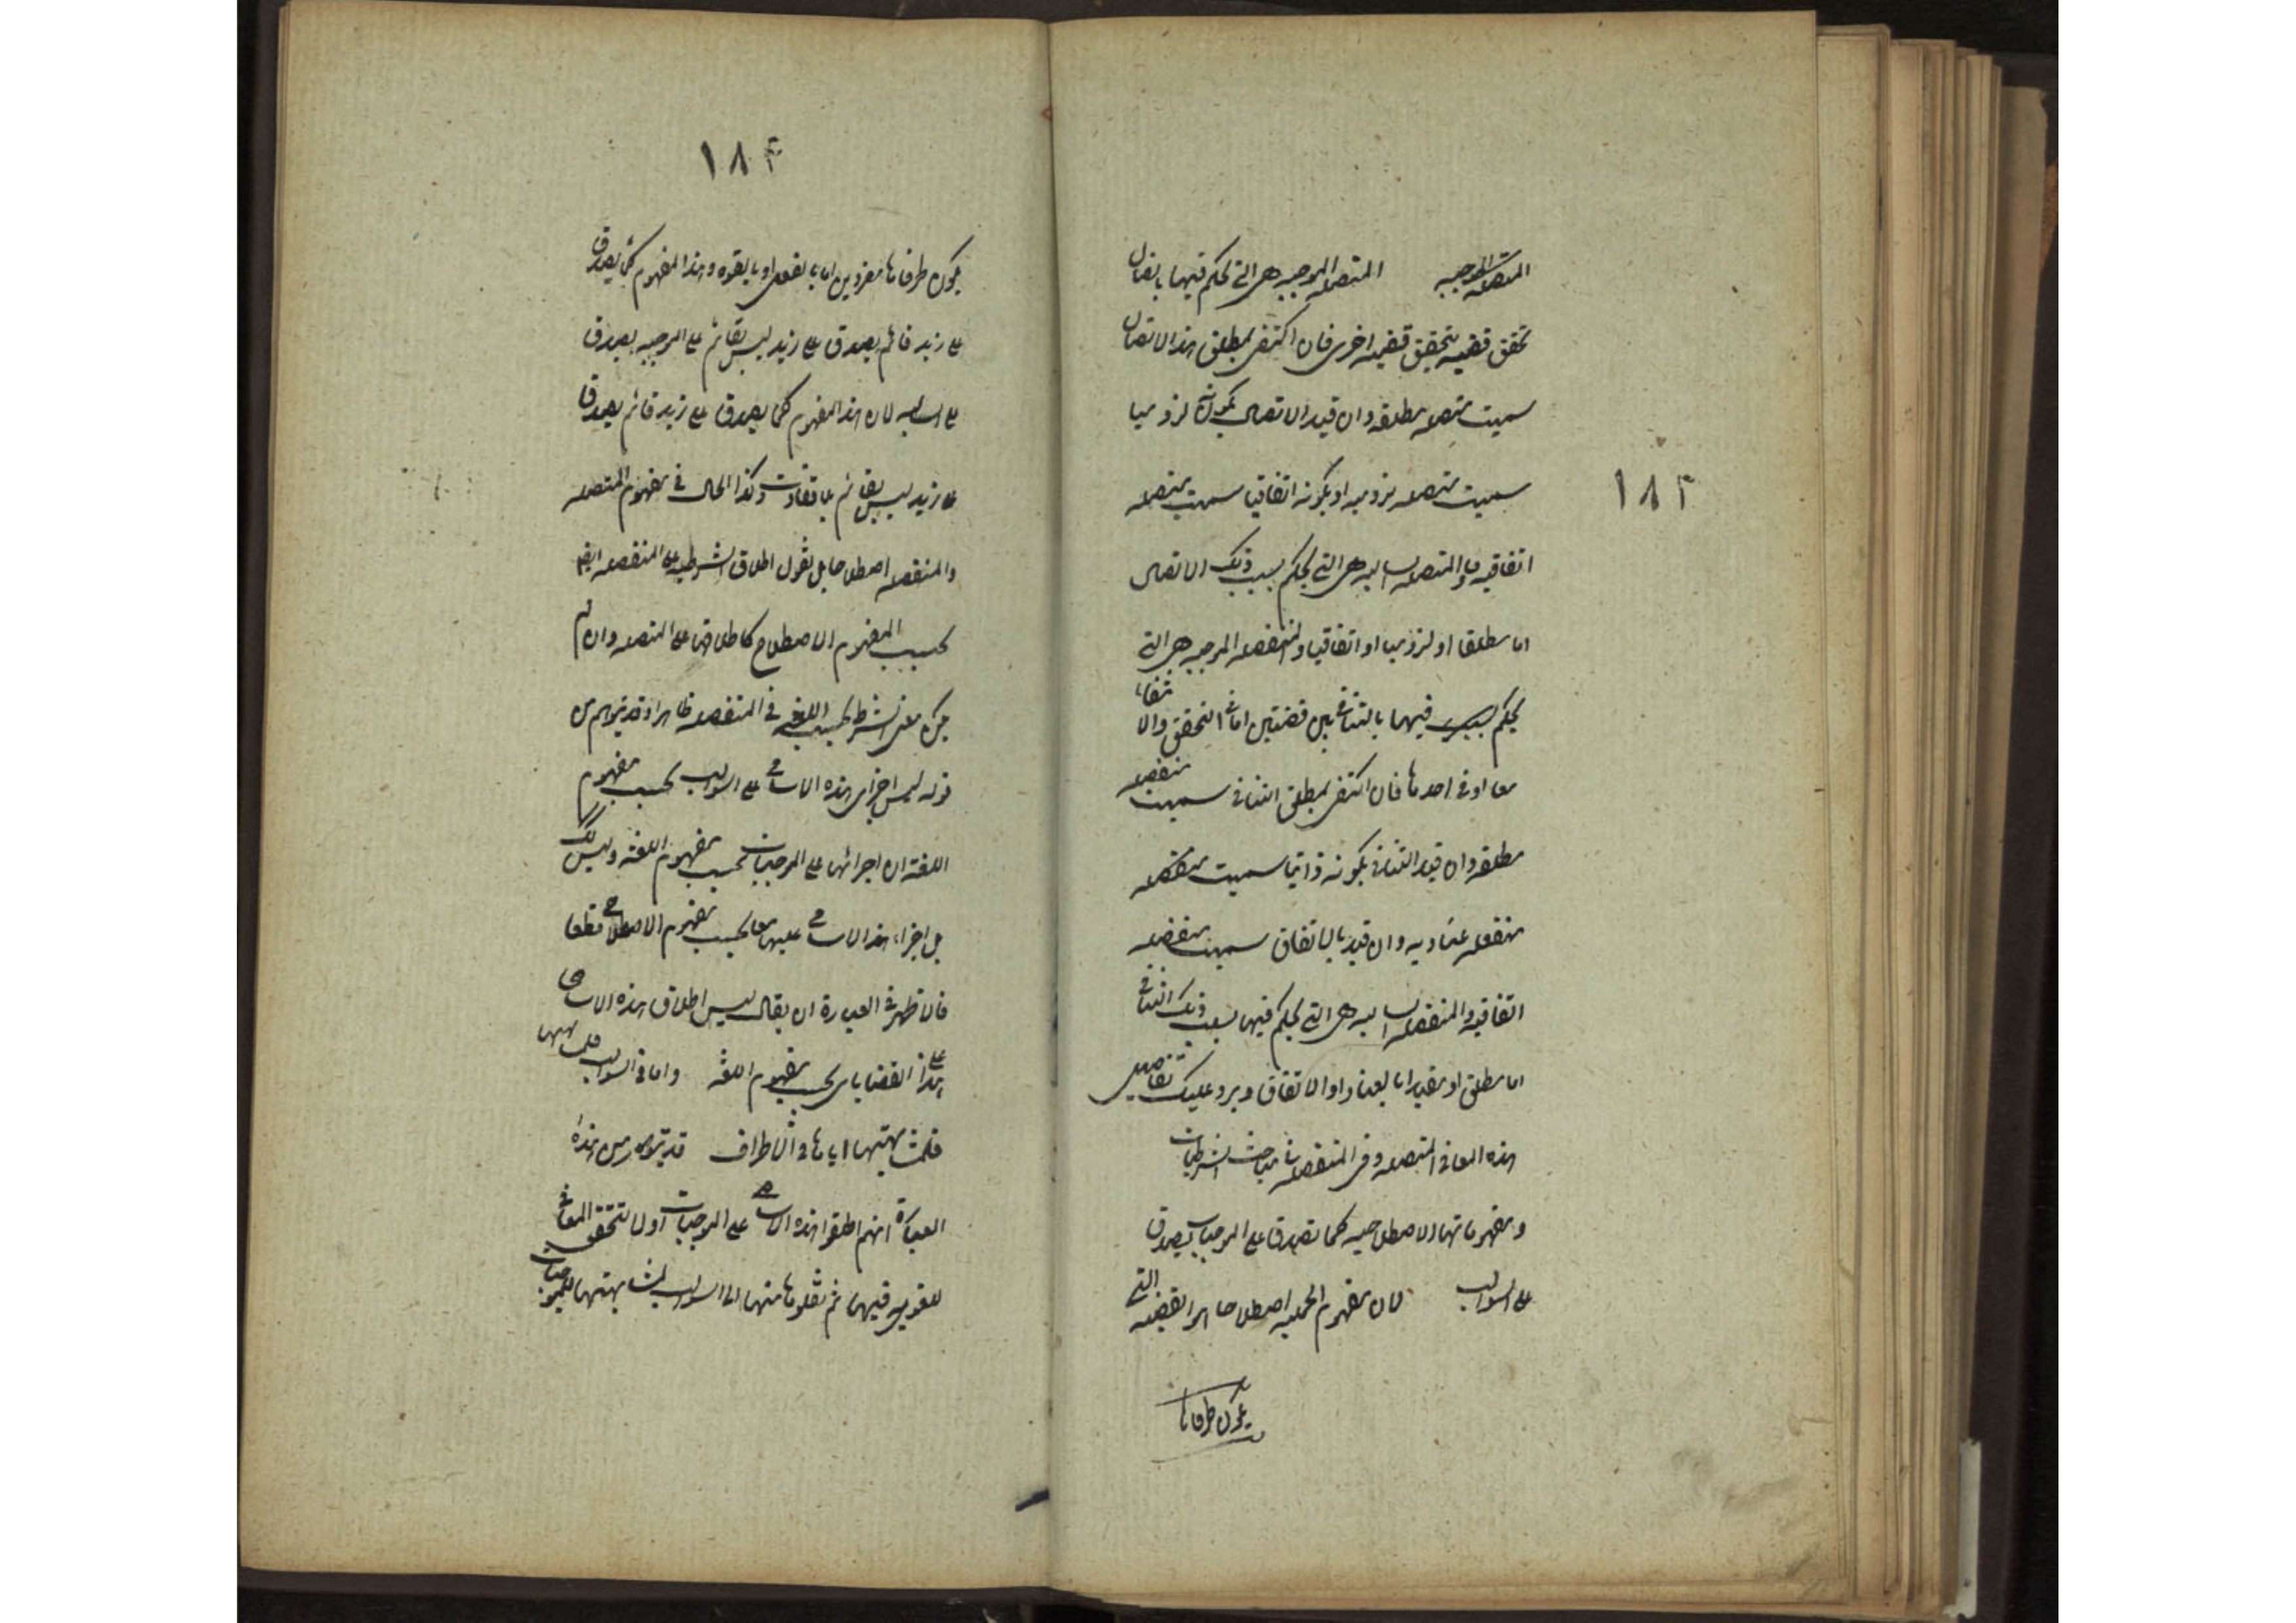 ١٨٣
المتصلة الموجبة المتصلة الموجبة هى التى يحكم فيها باتصال
تحقق قضيه بتحقق قضيه اخرى فان اكتفى بمطلق هذا الاتصال
سميت متصله مطلقه وان قيد الاتصال بكونه لزوميا
سميت متصله لزوميه او بكونه اتفاقيا سميت متصله
اتفاقيه والمتصله السالبه هى التى يحكم بسلب ذلك الاتصال
اما مطلقا او لزوميا او اتفاقيا والمنفصله الموجبه هى التى
يحكم فيها بالتنافى بين قضيتين اما فى التحقق والانتفاء
معا او فى احدهما فان اكتفى بمطلق التنافى سميت منفصله
مطلقه وان قيد التنافى بكونه ذاتيا سميت منفصله
منفصله عناديه وان قيد بالاتفاق سميت منفصله
اتفاقيه والمنفصله السالبه هى التى يحكم فيها بسلب ذلك التنافى
اما مطلق او مقيدا بالعناد او الاتفاق ويرد عليك تفاصيل
هذه المعانى فى المتصله وفى المنفصله فى مباحث الشرطيات
ومفهوماتها الاصطلاحيه كما تصدق على الموجبات يصدق
على السوالب لان مفهوم الحمليه اصطلاحا هو القضيه التى
يكون طرفاها
١٨٤
يكون طرفاها مفردين اما بالفعل او بالقوه وهذا المفهوم كما يصدق
على زيد قائم يصدق على زيد ليس بقائم على الموجبه يصدق
على السالبه لان هذا المفهوم كما يصدق على زيد قائم يصدق
على زيد ليس بقائم بلا تفاوت وكذا الحال فى مفهوم المتصله
والمنفصله اصطلاحا بل نقول اطلاق الشرطيه على المنفصله ايضا
بحسب المفهوم الاصطلاح كاطلاقها على المتصله وان لم
يكن معنى الشرط بحسب اللغه فى المنفصله ظاهرا وقد يتوهم من
قوله ليس اجراى هذه الاسامى على السوالب بحسب مفهوم
اللغة ان اجرائها على الموجبات بحسب مفهوم اللغة وليس كذلك
بل اجراء هذا الاسامى عليها معا بحسب مفهوم الاصطلاحى قطعا
فالاظهر فى العبارة ان يقال ليس اطلاق هذه الاسامى
على هذا القضايا بحسب مفهوم اللغة واما فى السوالب فلمشابهتها
فلمشابهتها اياها فى الاطراف قد يتوهم من هذه
العبارة انهم اطلقوا هذه الاسامى على الموجبات اولا لتحقق المعانى
اللغويه فيها ثم نقلوها منها الى السوالب لمشابهتها للموجبات